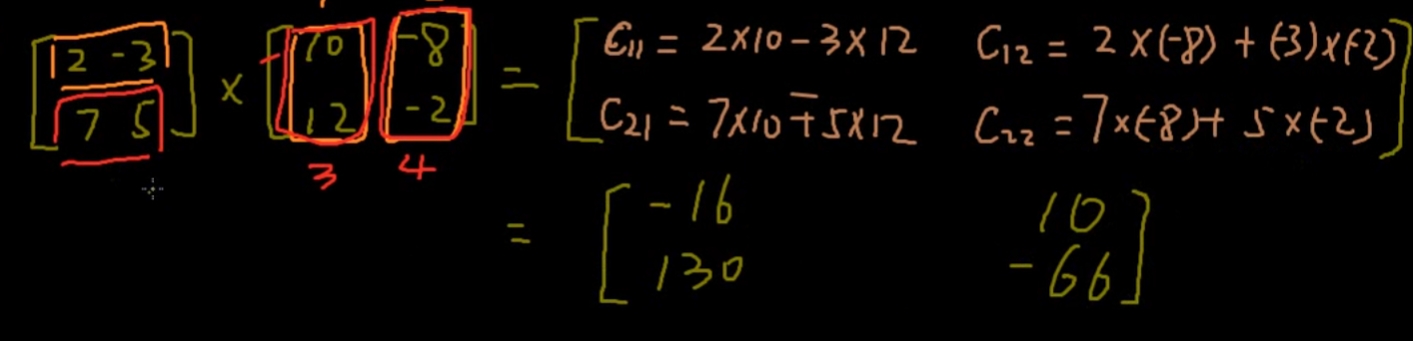 [2 -3] × [10 -8] = [C₁₁ = 2×10-3×12 C₁₂ = 2×(-8)+(-3)×(-2)]
[7 5] [12 -2] [C₂₁ = 7×10+5×12 C₂₂ = 7×(-8)+5×(-2)]
3 4
= [-16 10]
[130 -66]